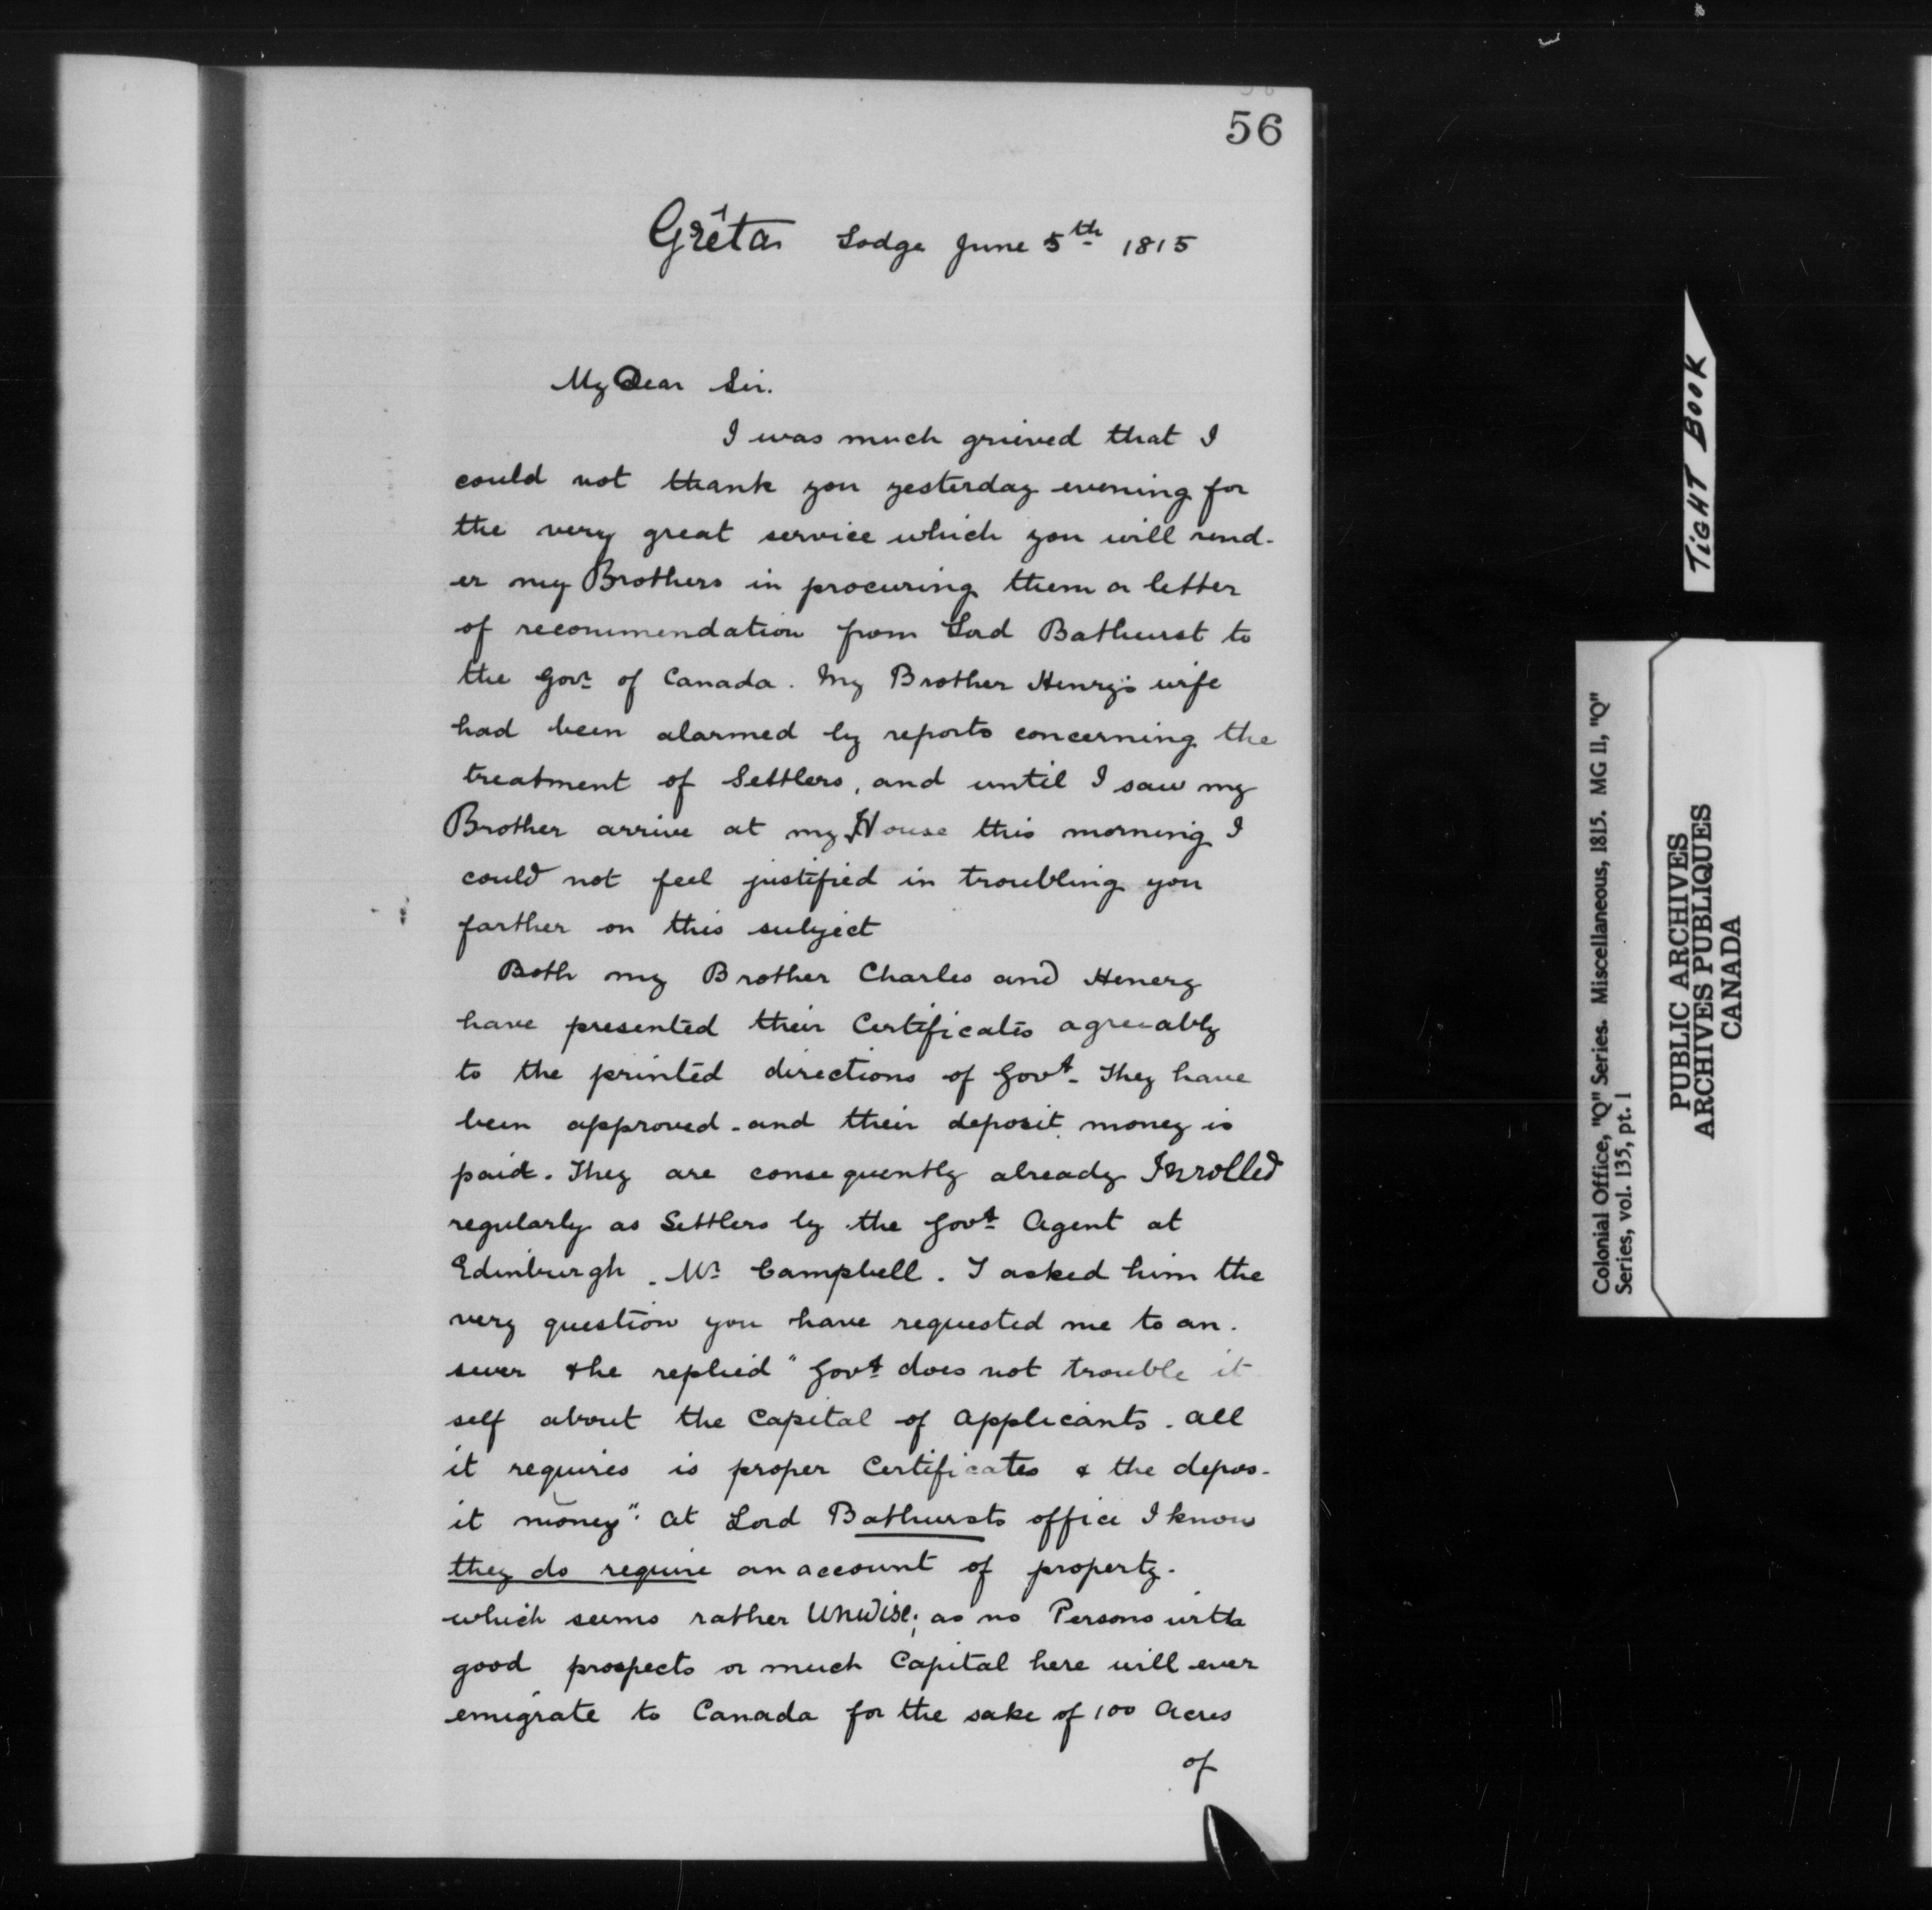 56
Grêta Lodge June 5th 1815
My Dear Sir.
I was much grieved that I
could not thank you yesterday evening for
the very great service which you will rend-
er my Brothers in procuring them a letter
of recommendation from Lord Bathurst to
the Govr of Canada. My Brother Henry's wife
had been alarmed by reports concerning the
treatment of Settlers, and until I saw my
Brother arrive at my House this morning I
could not feel justified in troubling you
farther on this subject
Both my Brother Charles and Henery
have presented their Certificates agreeably
to the printed directions of Govt. They have
been approved - and their deposit money is
paid. They are consequently already Inrolled
regularly as Settlers by the Govt Agent at
Edinburgh. Mr Campbell. I asked him the
very question you have requested me to an-
swer & he replied "Govt does not trouble it
self about the Capital of applicants. all
it requires is proper Certificates & the depos-
it money". At Lord Bathursts office I know
they do require an account of property.
which seems rather Unwise; as no Persons with
good prospects or much Capital here will ever
emigrate to Canada for the sake of 100 Acres
of
TIGHT BOOK
Colonial Office, "Q" Series. Miscellaneous, 1815. MG 11, "Q"
Series, vol. 135, pt. 1
PUBLIC ARCHIVES
ARCHIVES PUBLIQUES
CANADA